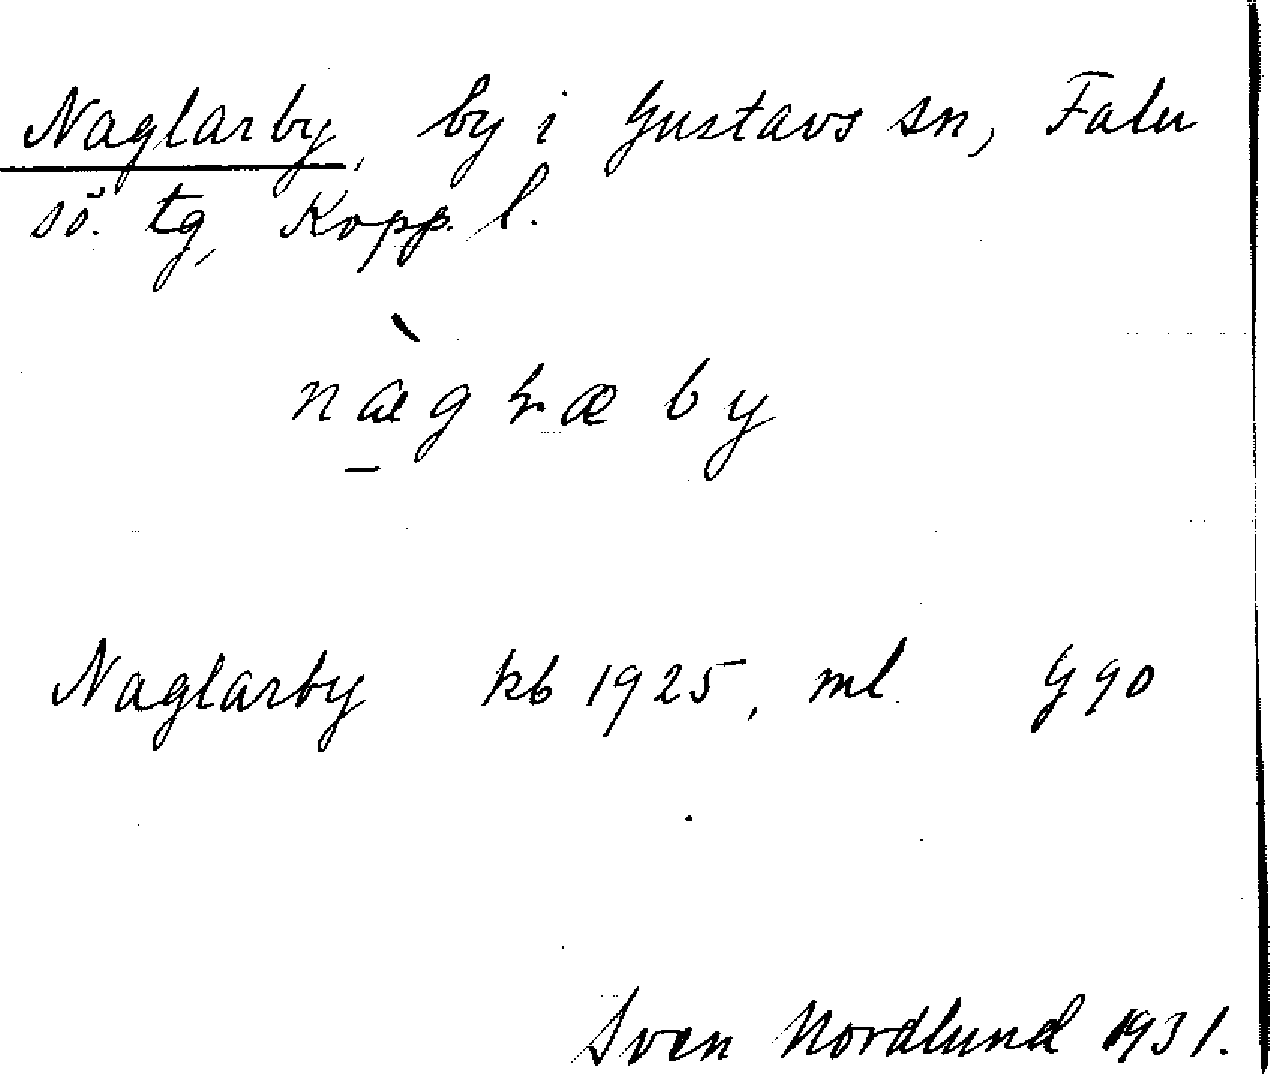 Naglarby, by i Gustavs sn, Falu
sö. tg, Kopp. l.
næ̀gɫæby
Naglarby kb 1925, ml. G 90
Sven Nordlund 1931.